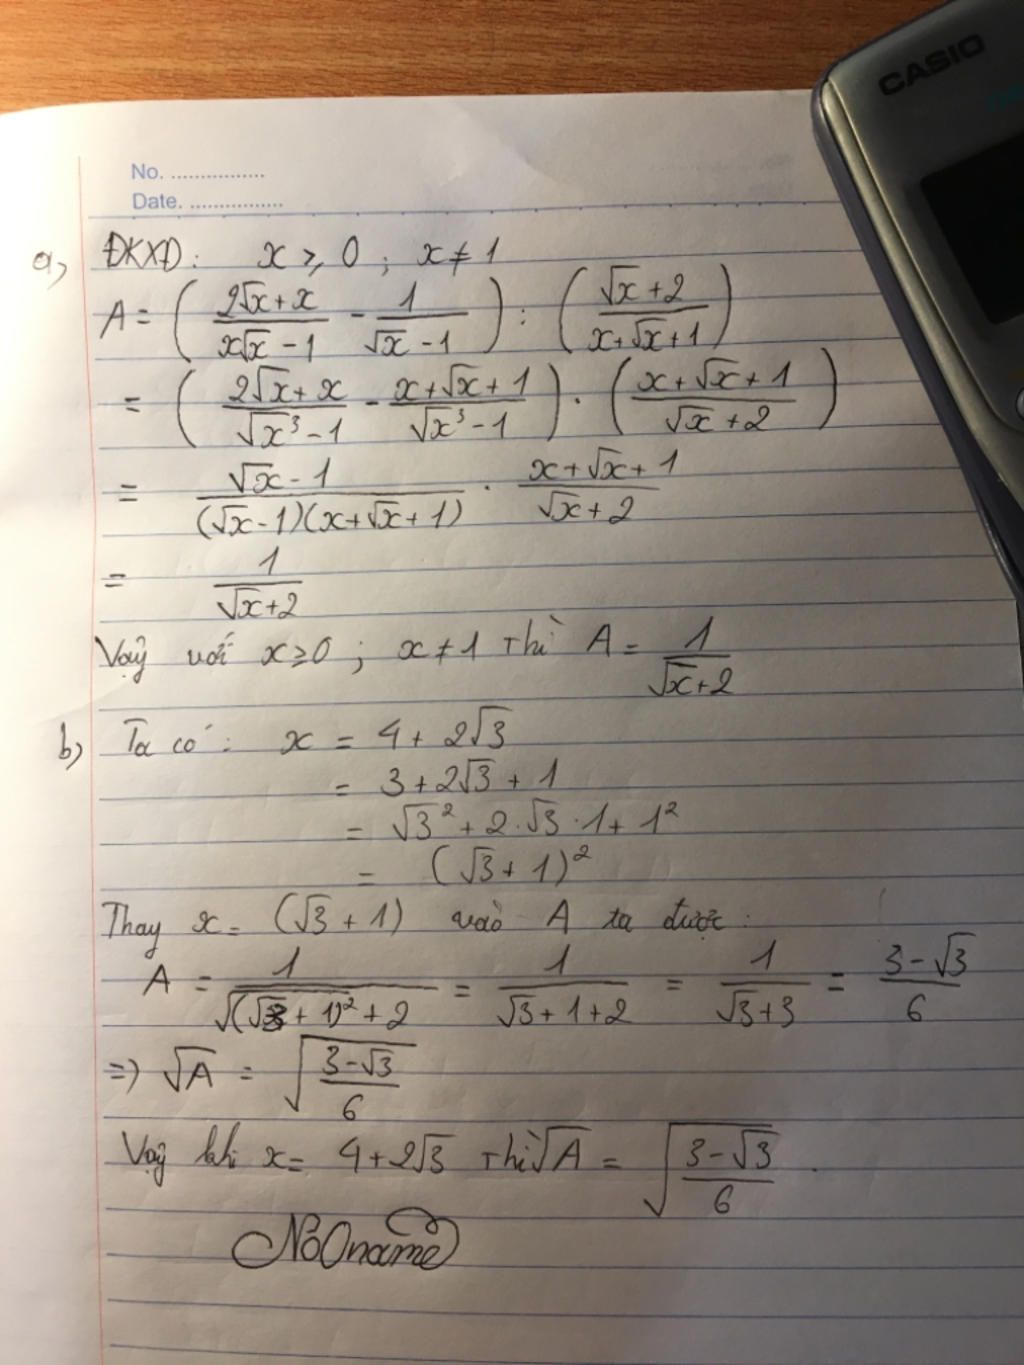 CASIO
No. ................
Date. ................
a, ĐKXĐ: x ⩾ 0 ; x ≠ 1
A = ( (2√x + x)/(x√x - 1) - 1/(√x - 1) ) : ( (√x + 2)/(x + √x + 1) )
= ( (2√x + x)/(√x³ - 1) - (x + √x + 1)/(√x³ - 1) ) · ( (x + √x + 1)/(√x + 2) )
= (√x - 1)/((√x - 1)(x + √x + 1)) · (x + √x + 1)/(√x + 2)
= 1/(√x + 2)
Vậy với x ≥ 0 ; x ≠ 1 thì A = 1/(√x + 2)
b) Ta có : x = 4 + 2√3
= 3 + 2√3 + 1
= √3² + 2·√3·1 + 1²
= (√3 + 1)²
Thay x = (√3 + 1) vào A ta được :
A = 1/(√(√3 + 1)² + 2) = 1/(√3 + 1 + 2) = 1/(√3 + 3) = (3 - √3)/6
=) √A = √((3 - √3)/6)
Vậy khi x = 4 + 2√3 thì √A = √((3 - √3)/6) .
NoOname